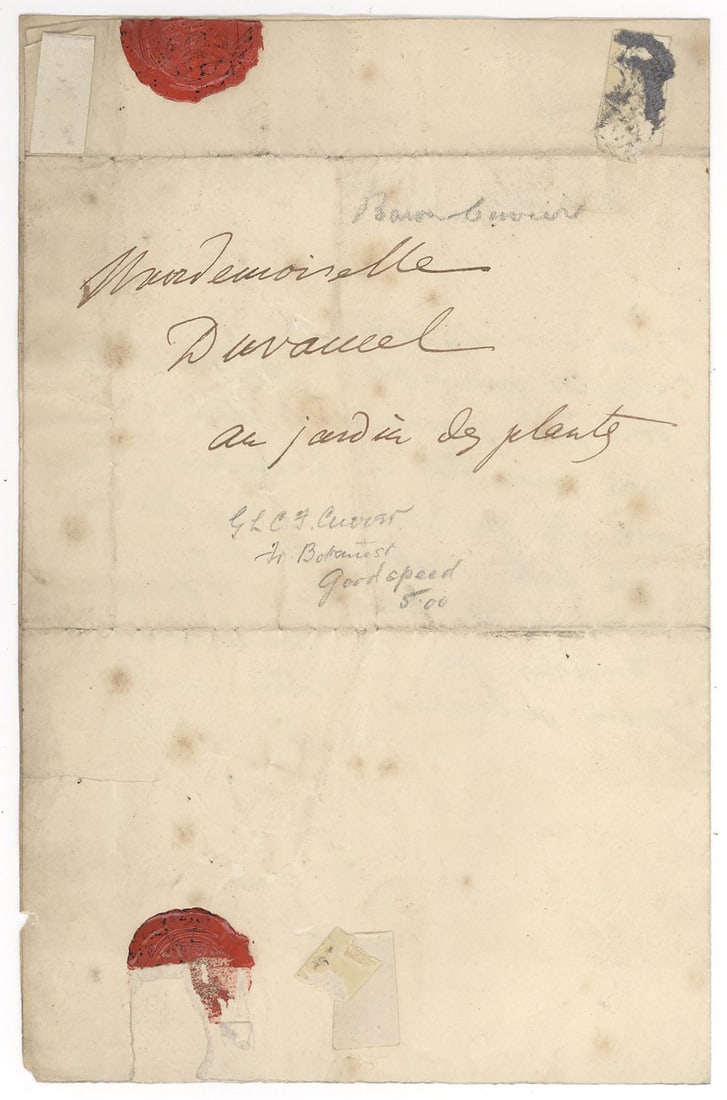 Baron Cuvier
Mademoiselle
Duvaucel
au jardin des plantes
G L C F. Cuvier
Fr. Botanist
Goodspeed
5.00